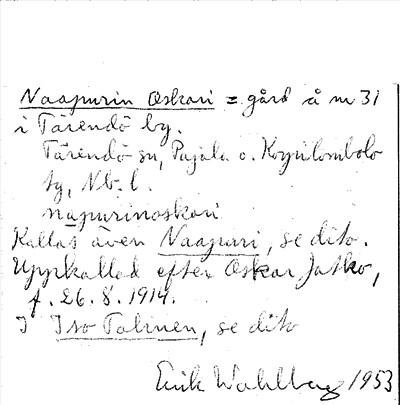 Naapurin Oskari = gård å nr 31
i Tärendö by.
Tärendö sn, Pajala o. Korpilombolo
tg, Nb. l.
napurinoskari
Kallas även Naapuri, se dito.
Uppkallad efter Oskar Jatko,
f. 26.8.1914.
I Iso Talinen, se dito
Erik Wahlberg 1953